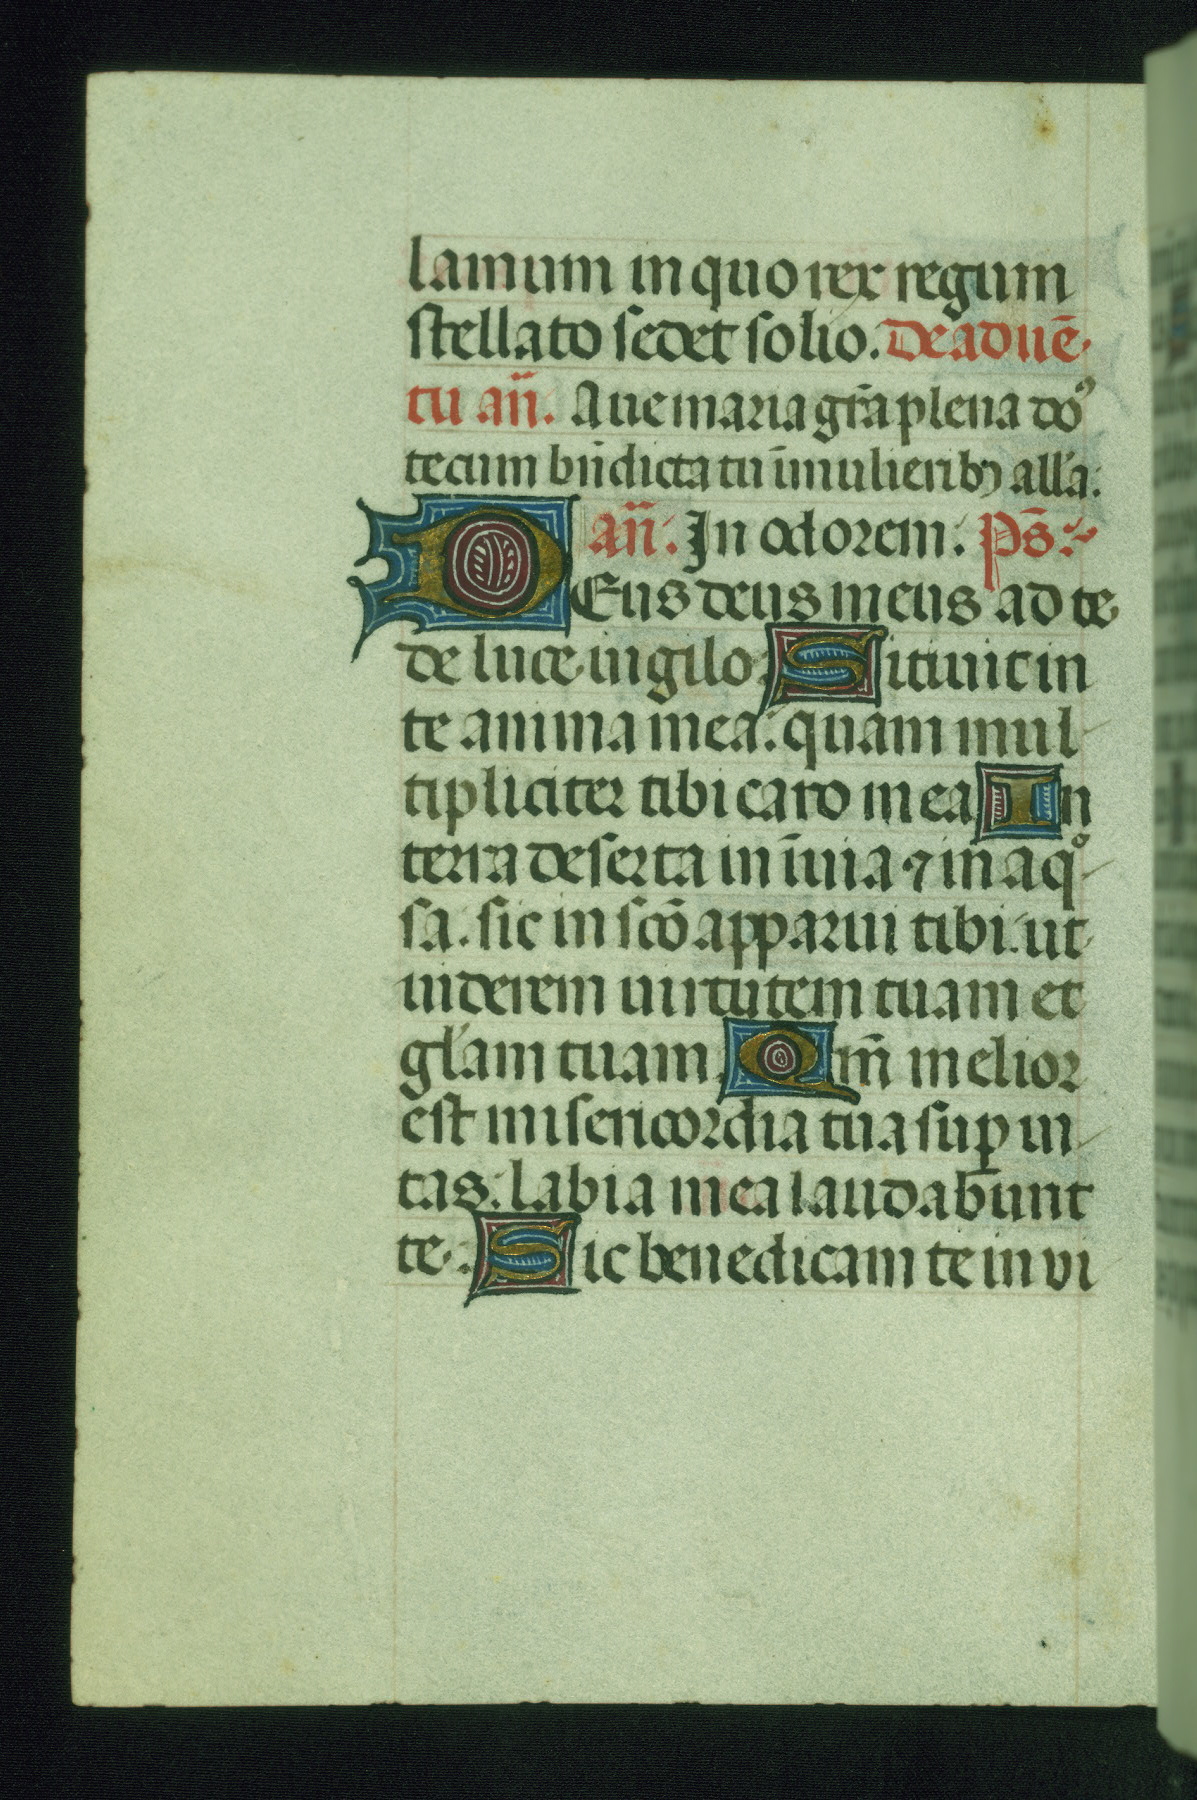 lamum in quo rex regum
stellato sedet solio. De aduē
tu añ. Aue maria grā plena dos̄
tecum bn̄dicta tu ī mulierib₉ allā.
añ. In odorem. Ps̄.
DEus deus meus ad te
de luce uigilo. Sitiuit in
te anima mea. quam mul
tipliciter tibi caro mea In
terra deserta in īuia ⁊ inaqͦ
sa. sic in scō apparui tibi. ut
uiderem uirtutem tuam et
gl'am tuam. Qm̄ melior
est misericordia tua suꝑ ui
tas. labia mea laudabunt
te. Sic benedicam te in vi